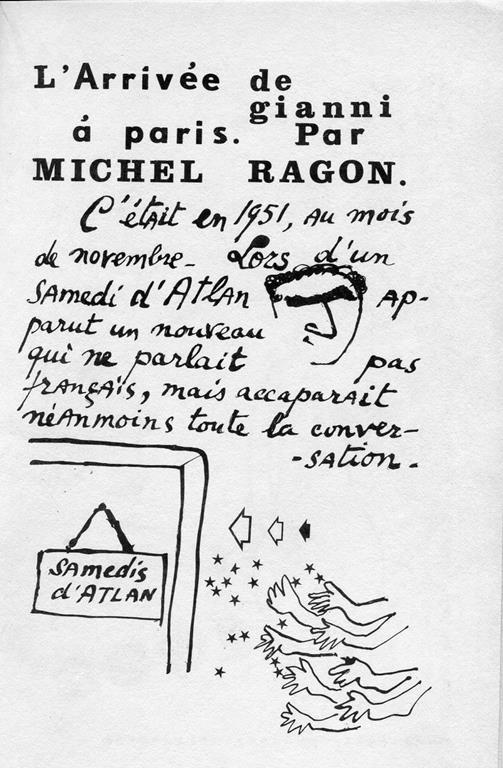 L'Arrivée de
gianni
á paris. Par
MICHEL RAGON.
C'était en 1951, au mois
de novembre- Lors d'un
samedi d'Atlan ap-
parut un nouveau
qui ne parlait pas
français, mais accaparait
néanmoins toute la conver-
-sation.
samedis
d'ATLAN